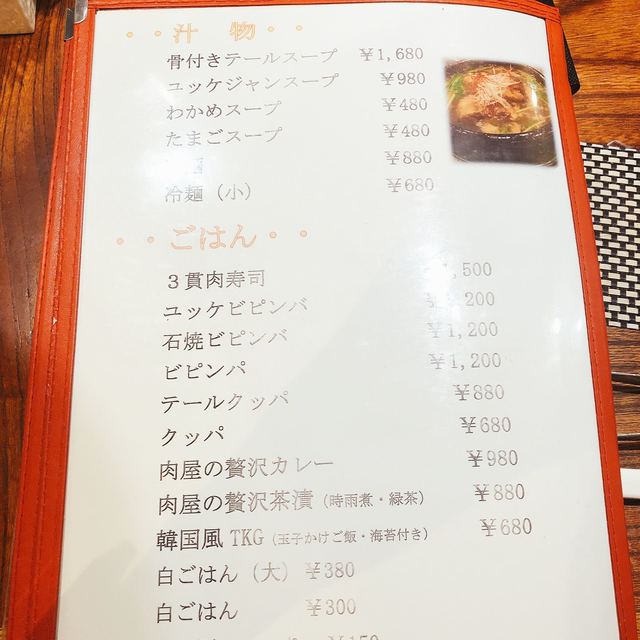 ・・汁 物・・
骨付きテールスープ ￥1,680
ユッケジャンスープ ￥980
わかめスープ ￥480
たまごスープ ￥480
￥880
冷麺（小） ￥680
・・ごはん・・
３貫肉寿司 500
ユッケビビンバ 200
石焼ビビンバ ￥1,200
ビビンバ ￥1,200
テールクッパ ￥880
クッパ ￥680
肉屋の贅沢カレー ￥980
肉屋の贅沢茶漬（時雨煮・緑茶） ￥880
韓国風 TKG（玉子かけご飯・海苔付き） ￥680
白ごはん（大） ￥380
白ごはん ￥300